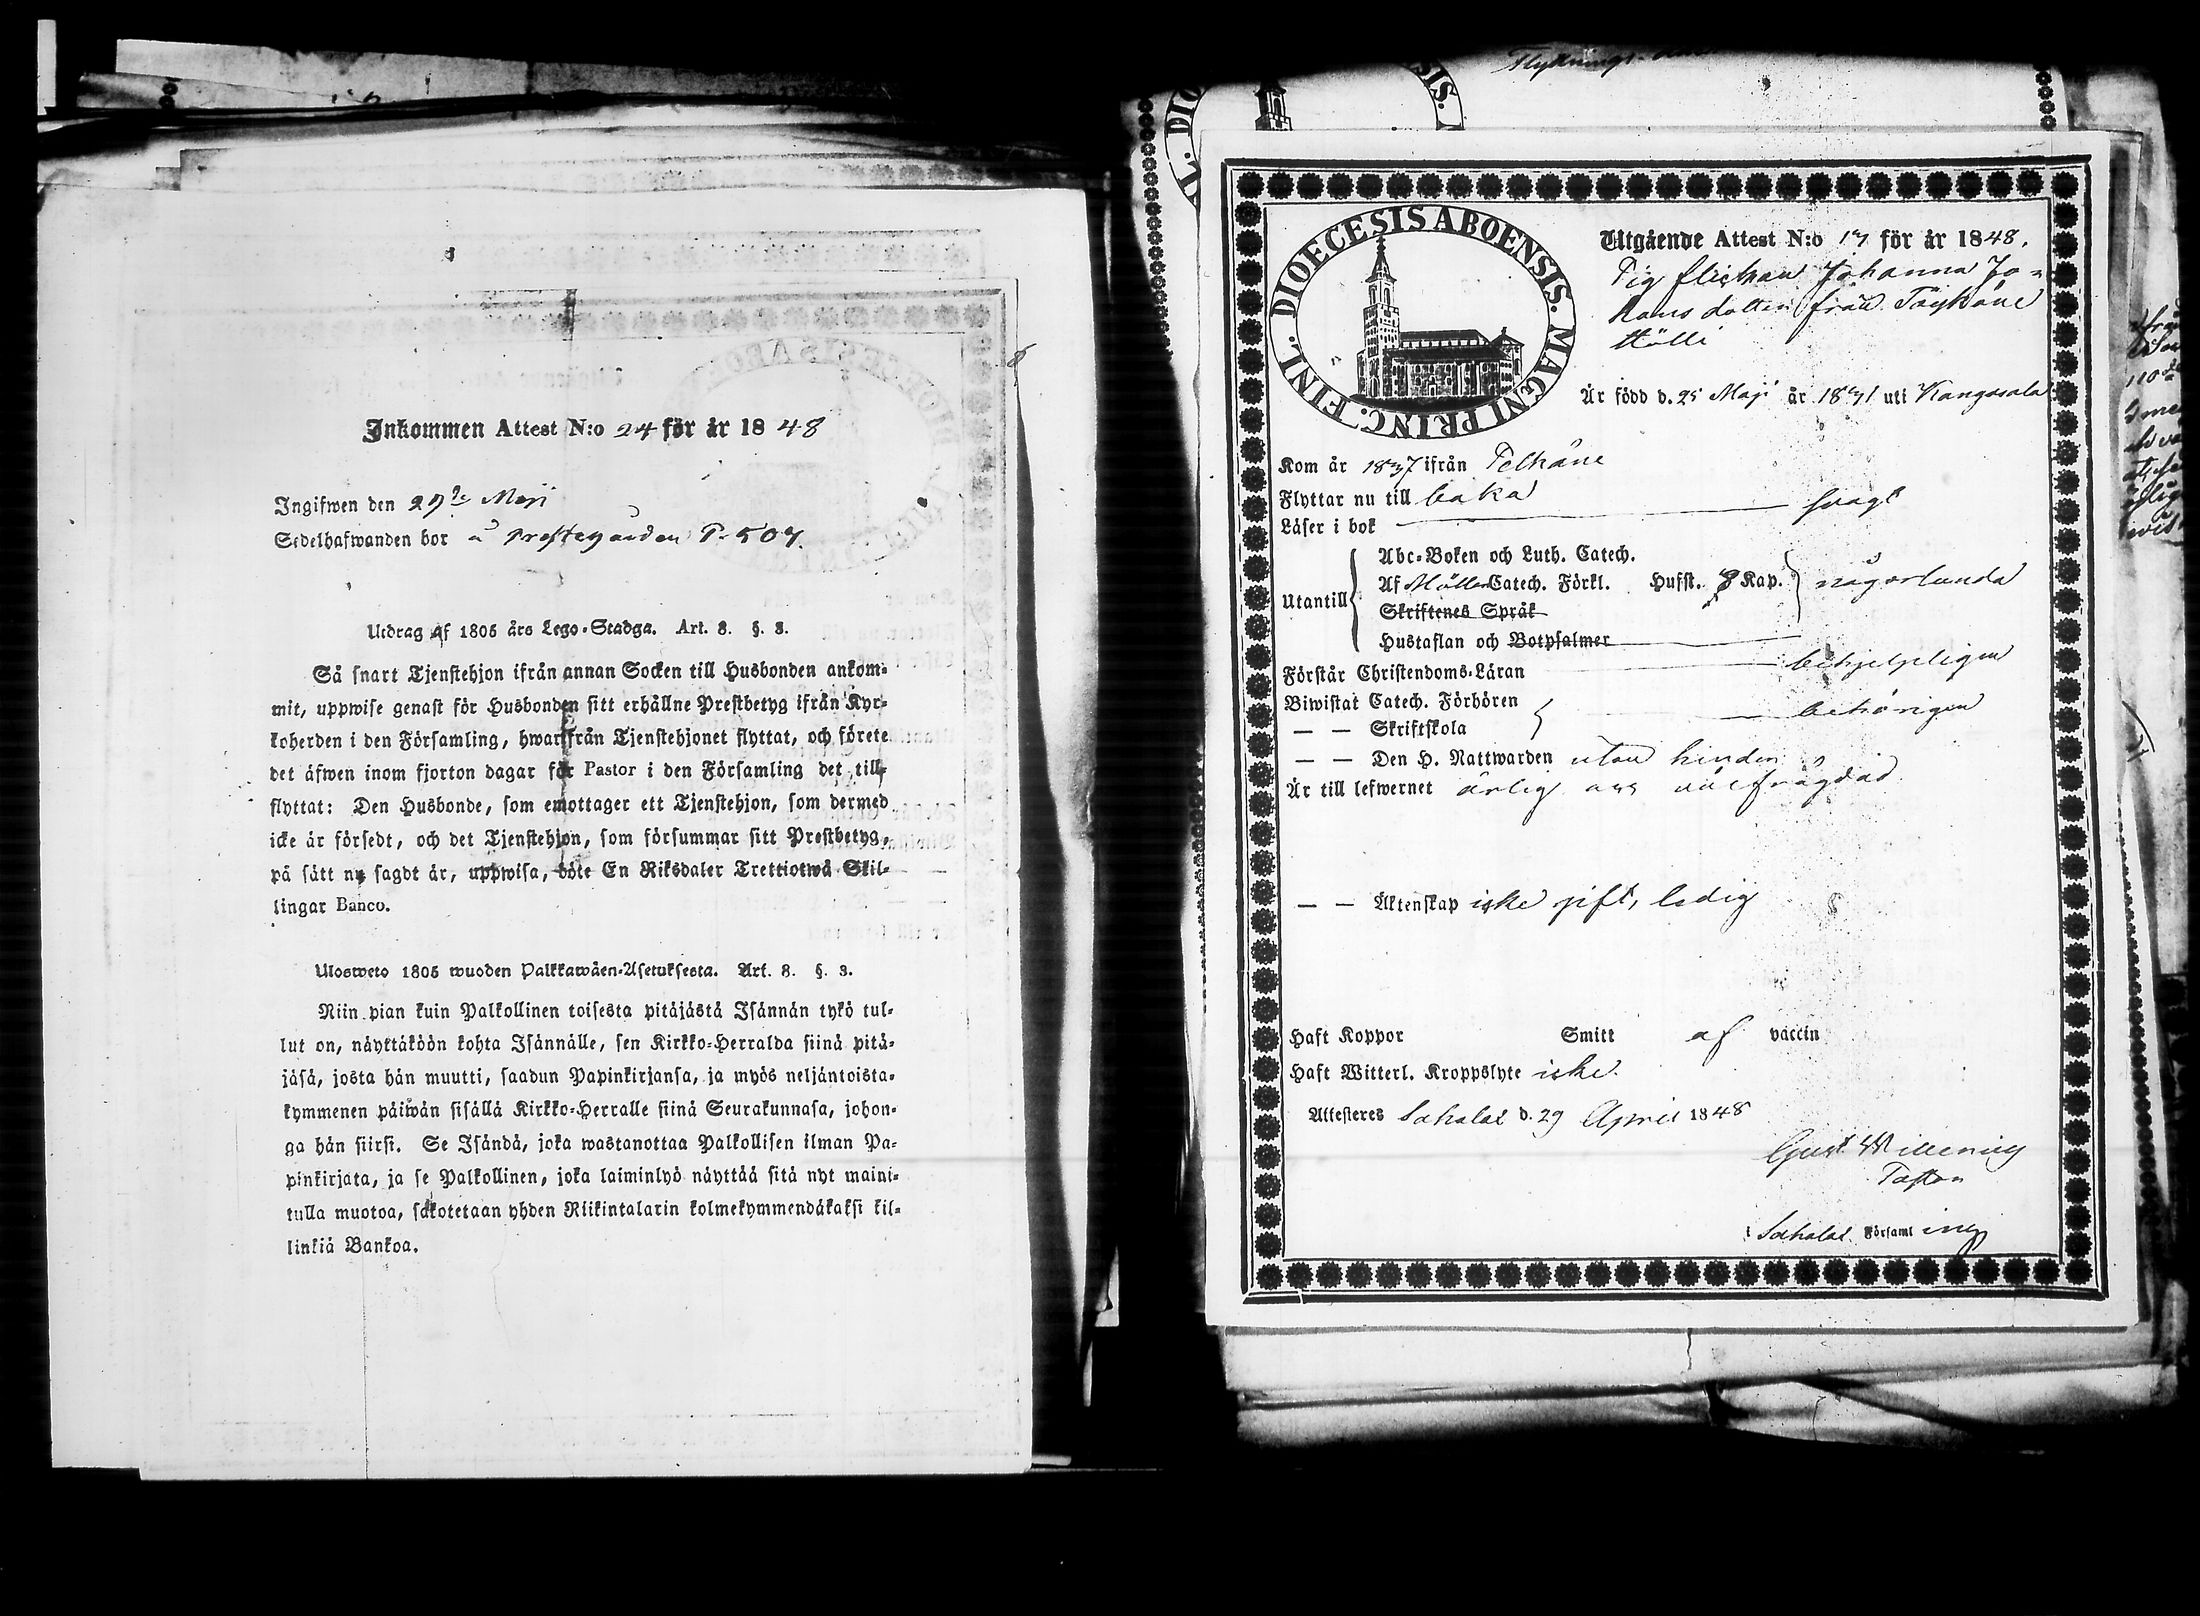 Inkommen Attest N:o 24 för år 1848
Ingifwen den 29de Maji
Sedelhafwanden bor å Prestegården P. 507.
Utdrag af 1805 års Lego-Stadga. Art. 8. §. 3.
Så snart Tjenstehjon ifrån annan Socken till Husbonden ankom-
mit, uppwise genast för Husbonden sitt erhållne Prestbetyg ifrån Kyr-
koherden i den Församling, hwarifrån Tjenstehjonet flyttat, och förete
det äfwen inom fjorton dagar för Pastor i den Församling det till-
flyttat: Den Husbonde, som emottager ett Tjenstehjon, som dermed
icke är försedt, och det Tjenstehjon, som försummar sitt Prestbetyg,
på sätt nu sagdt är, uppwisa, böte En Riksdaler Trettiotwå Skil-
lingar Banco.
Ulosweto 1805 wuoden Palkkawäen-Asetuksesta. Art. 8. §. 3.
Niin pian kuin Palkollinen toisesta pitäjästä Isännän tykö tul-
lut on, näyttäköön kohta Isännälle, sen Kirkko-Herralda siinä pitä-
jäsä, josta hän muutti, saadun Papinkirjansa, ja myös neljäntoista-
kymmenen päiwän sisällä Kirkko-Herralle siinä Seurakunnasa, johon-
ga hän siirsi. Se Isändä, joka wastanottaa Palkollisen ilman Pa-
pinkirjata, ja se Palkollinen, joka laiminlyö näyttää sitä nyt maini-
tulla muotoa, sakotetaan yhden Riikintalarin kolmekymmendäkaksi kil-
linkiä Bankoa.
DIOECESIS ABOENSIS. MAGNI PRINC. FINL.
Utgående Attest N:o 17 för år 1848.
Pig flickan Johanna Jo-
hans dotter från
Hölli
Är född d. 25 Maji år 1831 uti Kangasala
Kom år 1837 ifrån Pelkäne
Flyttar nu till baka
Läser i bok svagt
Abc-Boken och Luth. Catech.
Utantill Af Möllers Catech. Förkl. Hufst. 8 Kap. någorlunda
Skriftenes Språk
Hustaflan och Botpsalmer
Förstår Christendoms-Läran behjelpligen
Biwistat Catech. Förhören
— — Skriftskola behörigen
— — Den H. Nattwarden utan hinder
Är till lefwernet ärlig och välfrägdad
— — Äktenskap icke gift, ledig
Haft Koppor Smitt af vaccin
Haft Witterl. Kroppslyte icke.
Attesteres Sahalax d. 29 April 1848
Gust.
Pastor
i Sahalax Församling